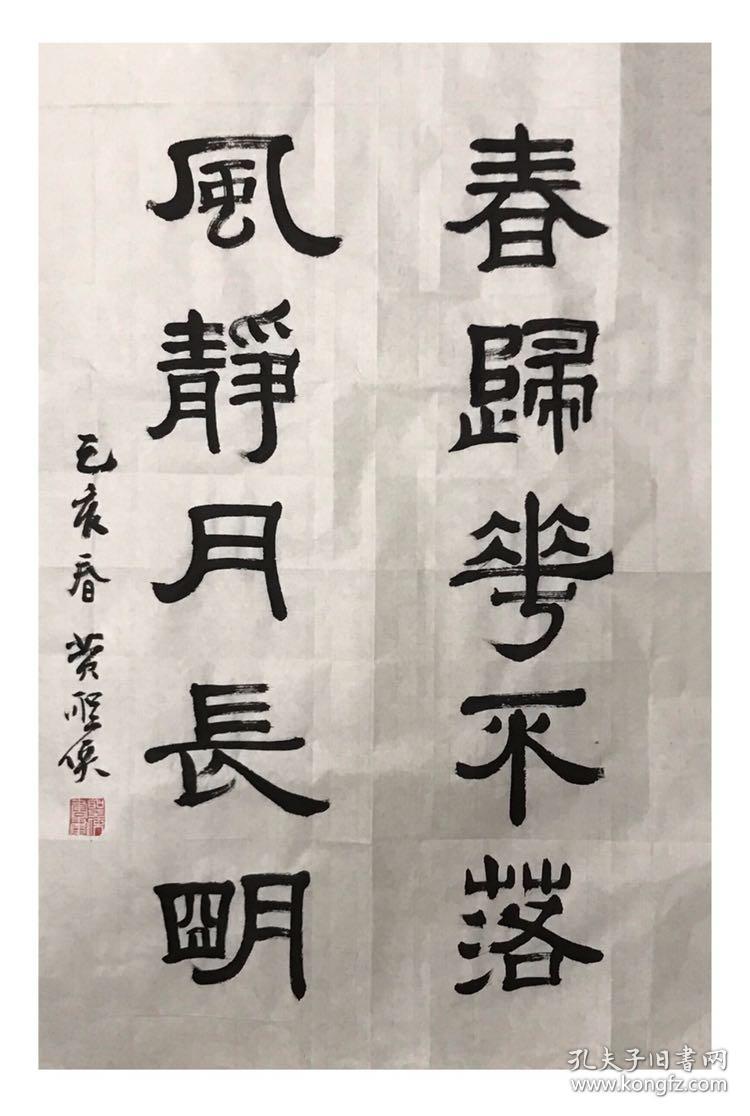 春歸花不落
風靜月長明
己亥春 黄
孔夫子旧書网
www.kongfz.com